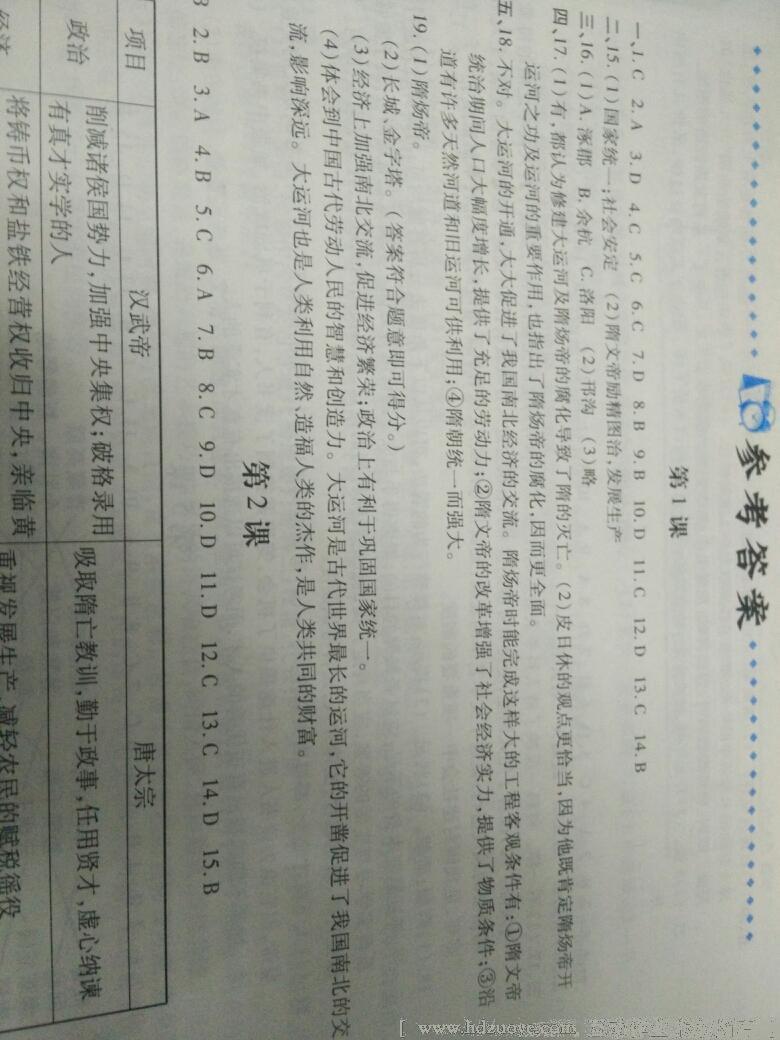 参考答案
第1课
一、1. C 2. A 3. D 4. C 5. C 6. C 7. D 8. B 9. B 10. D 11. C 12. D 13. C 14. B
二、15. (1)国家统一;社会安定 (2)隋文帝励精图治,发展生产
三、16. (1)A. 涿郡 B. 余杭 C. 洛阳 (2)邗沟 (3)略
四、17. (1)有,都认为修建大运河及隋炀帝的腐化导致了隋的灭亡。(2)皮日休的观点更恰当,因为他既肯定隋炀帝开
运河之功及运河的重要作用,也指出了隋炀帝的腐化,因而更全面。
五、18. 不对。大运河的开通,大大促进了我国南北经济的交流。隋炀帝时能完成这样大的工程客观条件有:①隋文帝
统治期间人口大幅度增长,提供了充足的劳动力;②隋文帝的改革增强了社会经济实力,提供了物质条件;③沿
道有许多天然河道和旧运河可供利用;④隋朝统一而强大。
19. (1)隋炀帝。
(2)长城、金字塔。(答案符合题意即可得分。)
(3)经济上加强南北交流,促进经济繁荣;政治上有利于巩固国家统一。
(4)体会到中国古代劳动人民的智慧和创造力。大运河是古代世界最长的运河,它的开凿促进了我国南北的交
流,影响深远。大运河也是人类利用自然、造福人类的杰作,是人类共同的财富。
第2课
B 2. B 3. A 4. B 5. C 6. A 7. B 8. C 9. D 10. D 11. D 12. C 13. C 14. D 15. B
项目 汉武帝 唐太宗
政治 削减诸侯国势力,加强中央集权;破格录用 吸取隋亡教训,勤于政事,任用贤才,虚心纳谏
有真才实学的人
经济 将铸币权和盐铁经营权收归中央,亲临黄 重视发展生产,减轻农民的赋税徭役
[ www.hdzuoye.com